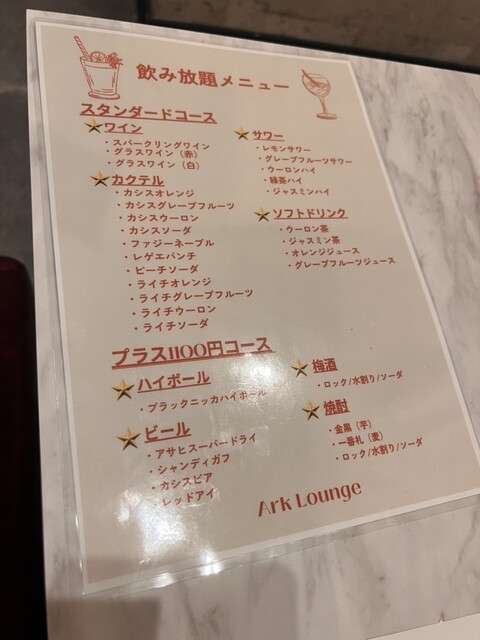 飲み放題メニュー
スタンダードコース
ワイン
・スパークリングワイン
・グラスワイン（赤）
・グラスワイン（白）
カクテル
・カシスオレンジ
・カシスグレープフルーツ
・カシスウーロン
・カシスソーダ
・ファジーネーブル
・レゲエパンチ
・ピーチソーダ
・ライチオレンジ
・ライチグレープフルーツ
・ライチウーロン
・ライチソーダ
サワー
・レモンサワー
・グレープフルーツサワー
・ウーロンハイ
・緑茶ハイ
・ジャスミンハイ
ソフトドリンク
・ウーロン茶
・ジャスミン茶
・オレンジジュース
・グレープフルーツジュース
プラス1100円コース
ハイボール
・ブラックニッカハイボール
ビール
・アサヒスーパードライ
・シャンディガフ
・カシスビア
・レッドアイ
梅酒
・ロック/水割り/ソーダ
焼酎
・金黒（芋）
・一番札（麦）
・ロック/水割り/ソーダ
Ark Lounge